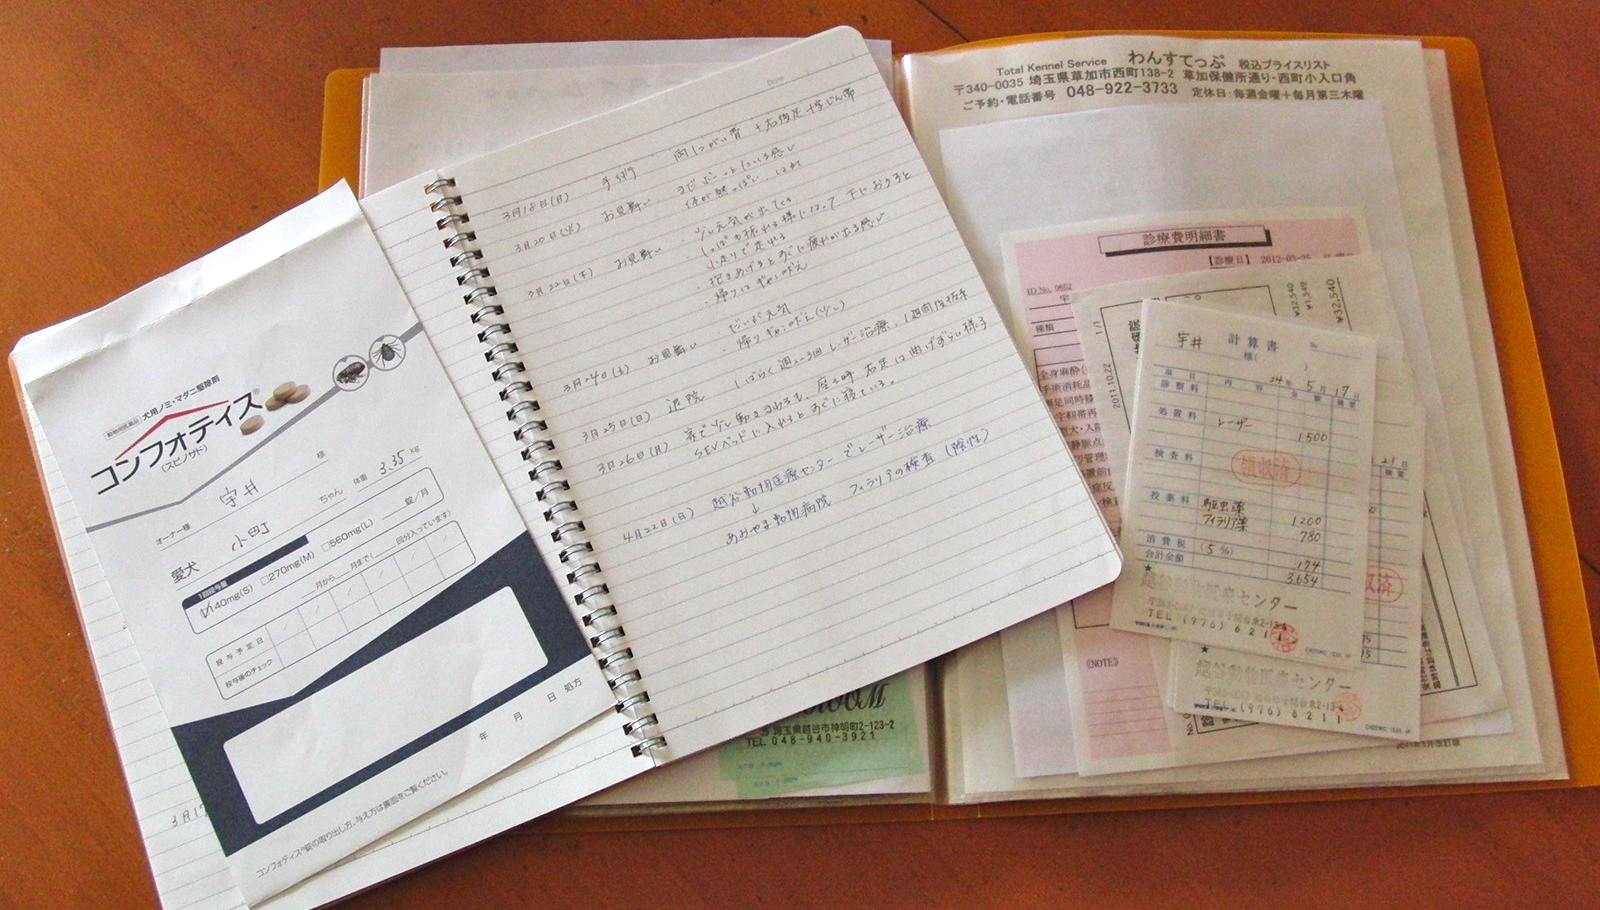 動物用医薬品 犬用ノミ・マダニ駆除剤
コンフォティス®
(スピノサド)
オーナー様 宇井 様
愛犬 小町 ちゃん 体重 3.35 kg
1回投与量
140mg(S) □270mg(M) □560mg(L) 錠/月
月から 月まで( 回分入っています)
投与予定日
投与後のチェック
年 月 日 処方
コンフォティス®錠の取り出し方、与え方は裏面をご覧ください。
3月17
Date
3月18日(日) 手術 両しつがい骨+右後足十字じん帯
3月20日(火) お見舞い まだボーっとしている感じ
体が熱っぽい、はれ
3月22日(木) お見舞い ・少し元気が出てくる
・しっぽも振れる様になって下におりると
小走りで走れる
・抱きあげるとすぐに疲れが出る感じ
・帰りはギャン吠え
3月24日(土) お見舞い ・だいぶ元気
・帰りギャン吠え(少し)
3月25日(日) 退院 しばらく週2〜3回レーザー治療、1週間後抜糸
3月26日(月) 家で少し動き始めるも、座る時右足は曲げずらい様子
SEVベッドに入れるとすぐに寝ている。
4月22日(日) 越谷動物医療センターでレーザー治療
↓
あおやま動物病院 フィラリアの検査(陰性)
Total Kennel Service わんすてっぷ 税込プライスリスト
〒340-0035 埼玉県草加市西町138-2 草加保健所通り・西町小入口角
ご予約・電話番号 048-922-3733 定休日:毎週金曜+毎月第三木曜
診療費明細書
【診療日】 2012-03-25
ID No. 9652
宇
種類
全身麻酔(
手術消耗品
《NOTE》
1/1
2011.10.22
¥32,540
¥1,549
¥32,540
計算書
宇井 様( )
№
24年 5月 17日
項目 内容 金額 摘要
診察料
処置料 レーザー 1500
領収済
検査料
投薬料 駆虫薬 1200
フィラリア薬 780
消費税 (5%) 174
合計金額 3,654
越谷動物医療センター
TEL (976) 6211
21日
収済
越谷動物医療センター
TEL (976) 6211
2011年5月改訂版
ROOM
埼玉県越谷市神明町2-123-2
TEL 048-940-3921